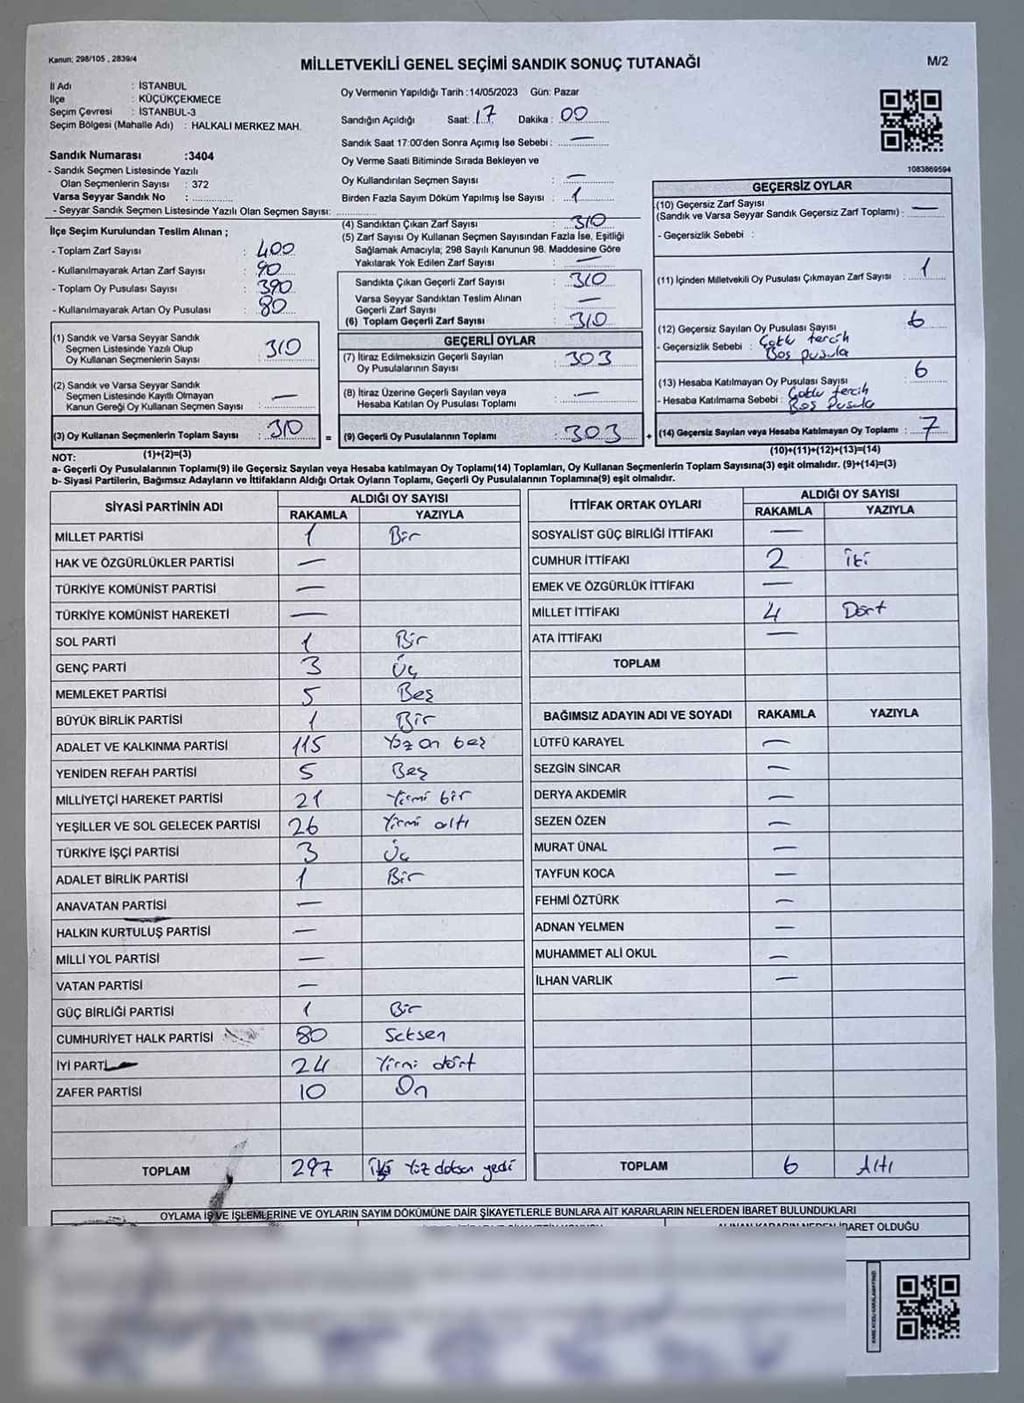 Kanun: 298/105 , 2839/4
MİLLETVEKİLİ GENEL SEÇİMİ SANDIK SONUÇ TUTANAĞI
M/2
İl Adı : İSTANBUL
İlçe : KÜÇÜKÇEKMECE
Seçim Çevresi : İSTANBUL-3
Seçim Bölgesi (Mahalle Adı) : HALKALI MERKEZ MAH.
Sandık Numarası :3404
- Sandık Seçmen Listesinde Yazılı
Olan Seçmenlerin Sayısı : 372
Varsa Seyyar Sandık No :
- Seyyar Sandık Seçmen Listesinde Yazılı Olan Seçmen Sayısı:
İlçe Seçim Kurulundan Teslim Alınan ;
- Toplam Zarf Sayısı : 400
- Kullanılmayarak Artan Zarf Sayısı : 90
- Toplam Oy Pusulası Sayısı : 390
- Kullanılmayarak Artan Oy Pusulası : 80
(1) Sandık ve Varsa Seyyar Sandık
Seçmen Listesinde Yazılı Olup
Oy Kullanan Seçmenlerin Sayısı : 310
(2) Sandık ve Varsa Seyyar Sandık
Seçmen Listesinde Kayıtlı Olmayan
Kanun Gereği Oy Kullanan Seçmen Sayısı : —
(3) Oy Kullanan Seçmenlerin Toplam Sayısı : 310
Oy Vermenin Yapıldığı Tarih :14/05/2023 Gün: Pazar
Sandığın Açıldığı Saat: 17 Dakika : 00
Sandık Saat 17:00'den Sonra Açımış İse Sebebi : —
Oy Verme Saati Bitiminde Sırada Bekleyen ve
Oy Kullandırılan Seçmen Sayısı : —
Birden Fazla Sayım Döküm Yapılmış İse Sayısı : 1
(4) Sandıktan Çıkan Zarf Sayısı : 310
(5) Zarf Sayısı Oy Kullanan Seçmen Sayısından Fazla İse, Eşitliği
Sağlamak Amacıyla; 298 Sayılı Kanunun 98. Maddesine Göre
Yakılarak Yok Edilen Zarf Sayısı : —
Sandıkta Çıkan Geçerli Zarf Sayısı : 310
Varsa Seyyar Sandıktan Teslim Alınan
Geçerli Zarf Sayısı : —
(6) Toplam Geçerli Zarf Sayısı : 310
GEÇERLİ OYLAR
(7) İtiraz Edilmeksizin Geçerli Sayılan
Oy Pusulalarının Sayısı : 303
(8) İtiraz Üzerine Geçerli Sayılan veya
Hesaba Katılan Oy Pusulası Toplamı : —
= (9) Geçerli Oy Pusulalarının Toplamı : 303 +
1083869594
GEÇERSİZ OYLAR
(10) Geçersiz Zarf Sayısı
(Sandık ve Varsa Seyyar Sandık Geçersiz Zarf Toplamı) : —
- Geçersizlik Sebebi :
(11) İçinden Milletvekili Oy Pusulası Çıkmayan Zarf Sayısı : 1
(12) Geçersiz Sayılan Oy Pusulası Sayısı : 6
- Geçersizlik Sebebi : Çoklu tercih
Boş pusula
(13) Hesaba Katılmayan Oy Pusulası Sayısı : 6
- Hesaba Katılmama Sebebi : Çoklu tercih
Boş Pusula
(14) Geçersiz Sayılan veya Hesaba Katılmayan Oy Toplamı : 7
NOT: (1)+(2)=(3)
(10)+(11)+(12)+(13)=(14)
a- Geçerli Oy Pusulalarının Toplamı(9) ile Geçersiz Sayılan veya Hesaba katılmayan Oy Toplamı(14) Toplamları, Oy Kullanan Seçmenlerin Toplam Sayısına(3) eşit olmalıdır. (9)+(14)=(3)
b- Siyasi Partilerin, Bağımsız Adayların ve İttifakların Aldığı Ortak Oyların Toplamı, Geçerli Oy Pusulalarının Toplamına(9) eşit olmalıdır.
SİYASİ PARTİNİN ADI ALDIĞI OY SAYISI
RAKAMLA YAZIYLA
MİLLET PARTİSİ 1 Bir
HAK VE ÖZGÜRLÜKLER PARTİSİ —
TÜRKİYE KOMÜNİST PARTİSİ —
TÜRKİYE KOMÜNİST HAREKETİ —
SOL PARTİ 1 Bir
GENÇ PARTİ 3 Üç
MEMLEKET PARTİSİ 5 Beş
BÜYÜK BİRLİK PARTİSİ 1 Bir
ADALET VE KALKINMA PARTİSİ 115 Yüz on beş
YENİDEN REFAH PARTİSİ 5 Beş
MİLLİYETÇİ HAREKET PARTİSİ 21 Yirmi bir
YEŞİLLER VE SOL GELECEK PARTİSİ 26 Yirmi altı
TÜRKİYE İŞÇİ PARTİSİ 3 Üç
ADALET BİRLİK PARTİSİ 1 Bir
ANAVATAN PARTİSİ —
HALKIN KURTULUŞ PARTİSİ —
MİLLİ YOL PARTİSİ —
VATAN PARTİSİ —
GÜÇ BİRLİĞİ PARTİSİ 1 Bir
CUMHURİYET HALK PARTİSİ 80 Seksen
İYİ PARTİ 24 Yirmi dört
ZAFER PARTİSİ 10 On
TOPLAM 297 İki Yüz doksan yedi
İTTİFAK ORTAK OYLARI ALDIĞI OY SAYISI
RAKAMLA YAZIYLA
SOSYALİST GÜÇ BİRLİĞİ İTTİFAKI —
CUMHUR İTTİFAKI 2 İki
EMEK VE ÖZGÜRLÜK İTTİFAKI —
MİLLET İTTİFAKI 4 Dört
ATA İTTİFAKI —
TOPLAM
BAĞIMSIZ ADAYIN ADI VE SOYADI RAKAMLA YAZIYLA
LÜTFÜ KARAYEL —
SEZGİN SİNCAR —
DERYA AKDEMİR —
SEZEN ÖZEN —
MURAT ÜNAL —
TAYFUN KOCA —
FEHMİ ÖZTÜRK —
ADNAN YELMEN —
MUHAMMET ALİ OKUL —
İLHAN VARLIK —
TOPLAM 6 Altı
OYLAMA İŞ VE İŞLEMLERİNE VE OYLARIN SAYIM DÖKÜMÜNE DAİR ŞİKAYETLERLE BUNLARA AİT KARARLARIN NELERDEN İBARET BULUNDUKLARI
ALINAN KARARIN NEDEN İBARET OLDUĞU